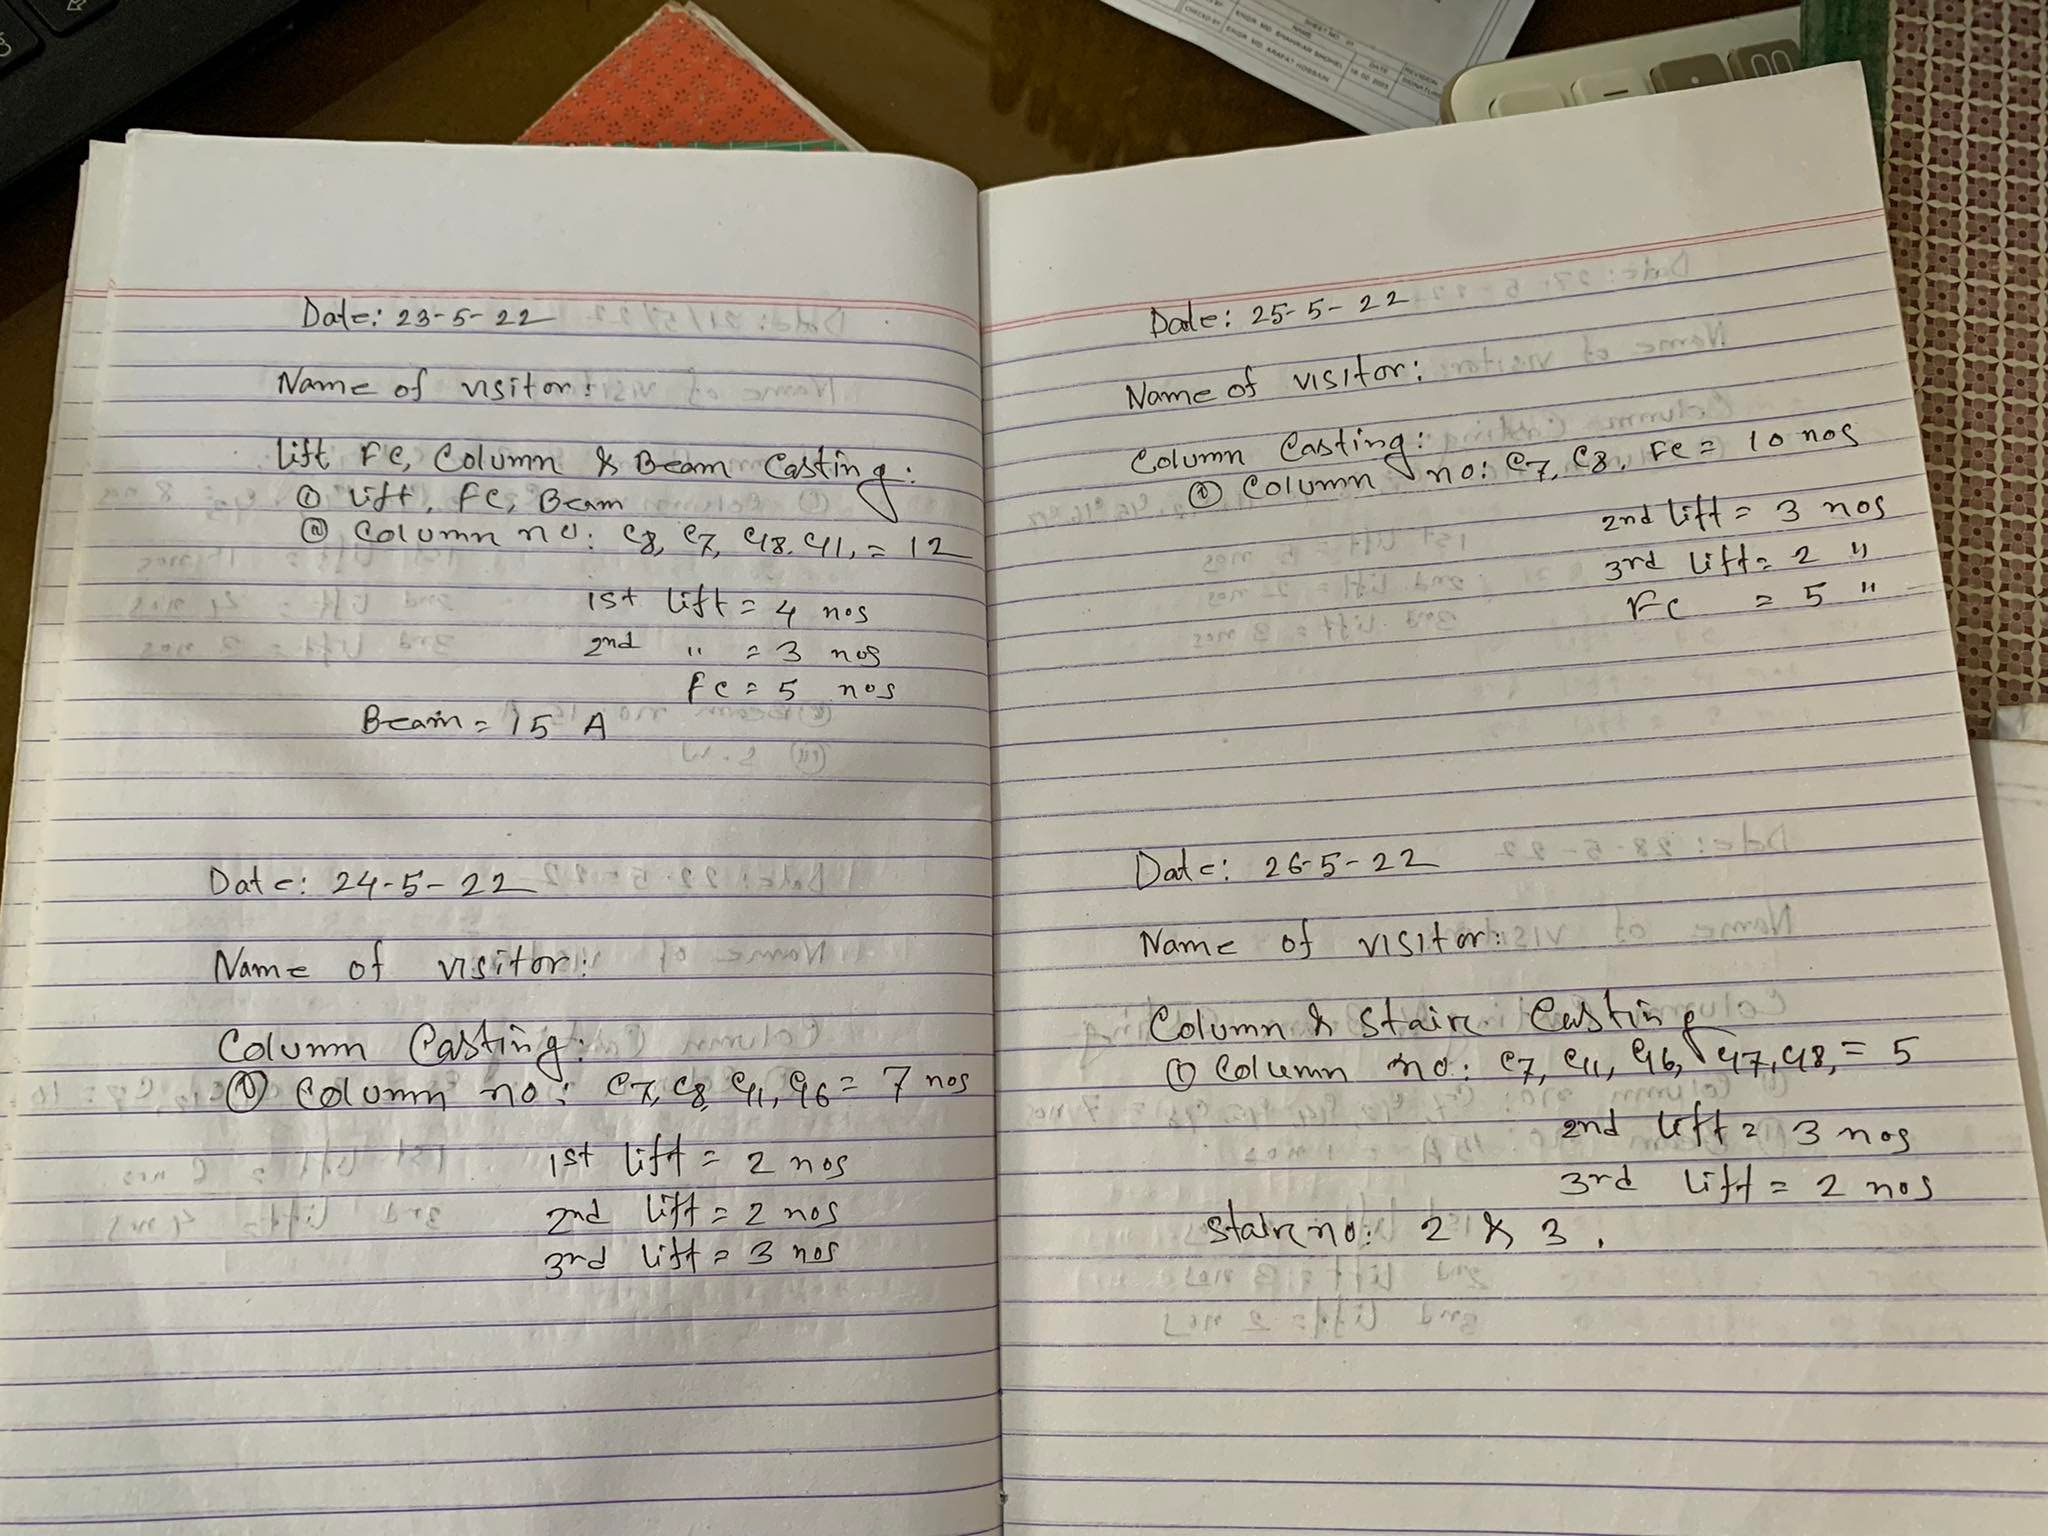 SHEET NO. 01
NAME DATE REVISION
ENGR. MD. SHAHRIAR SHOHEL
CHECKED BY
ENGR. MD. ARAFAT HOSSAIN
Date: 23-5-22
Name of visitor:
Lift FC, Column & Beam Casting:
① Lift, FC, Beam
⑪ Column no: C8, C7, C18, C11, = 12
1st lift = 4 nos
2nd " = 3 nos
FC = 5 nos
Beam = 15 A
Date: 24-5-22
Name of visitor:
Column Casting:
① Column no: C7, C8, C11, C16 = 7 nos
1st lift = 2 nos
2nd lift = 2 nos
3rd lift = 3 nos
Date: 25-5-22
Name of visitor:
Column Casting:
① Column no: C7, C8, FC = 10 nos
2nd lift = 3 nos
3rd lift = 2 "
FC = 5 "
Date: 26-5-22
Name of visitor:
Column & Stair Casting
① Column no: C7, C11, C16, C17, C18, = 5
2nd lift = 3 nos
3rd lift = 2 nos
Stair no: 2 & 3.